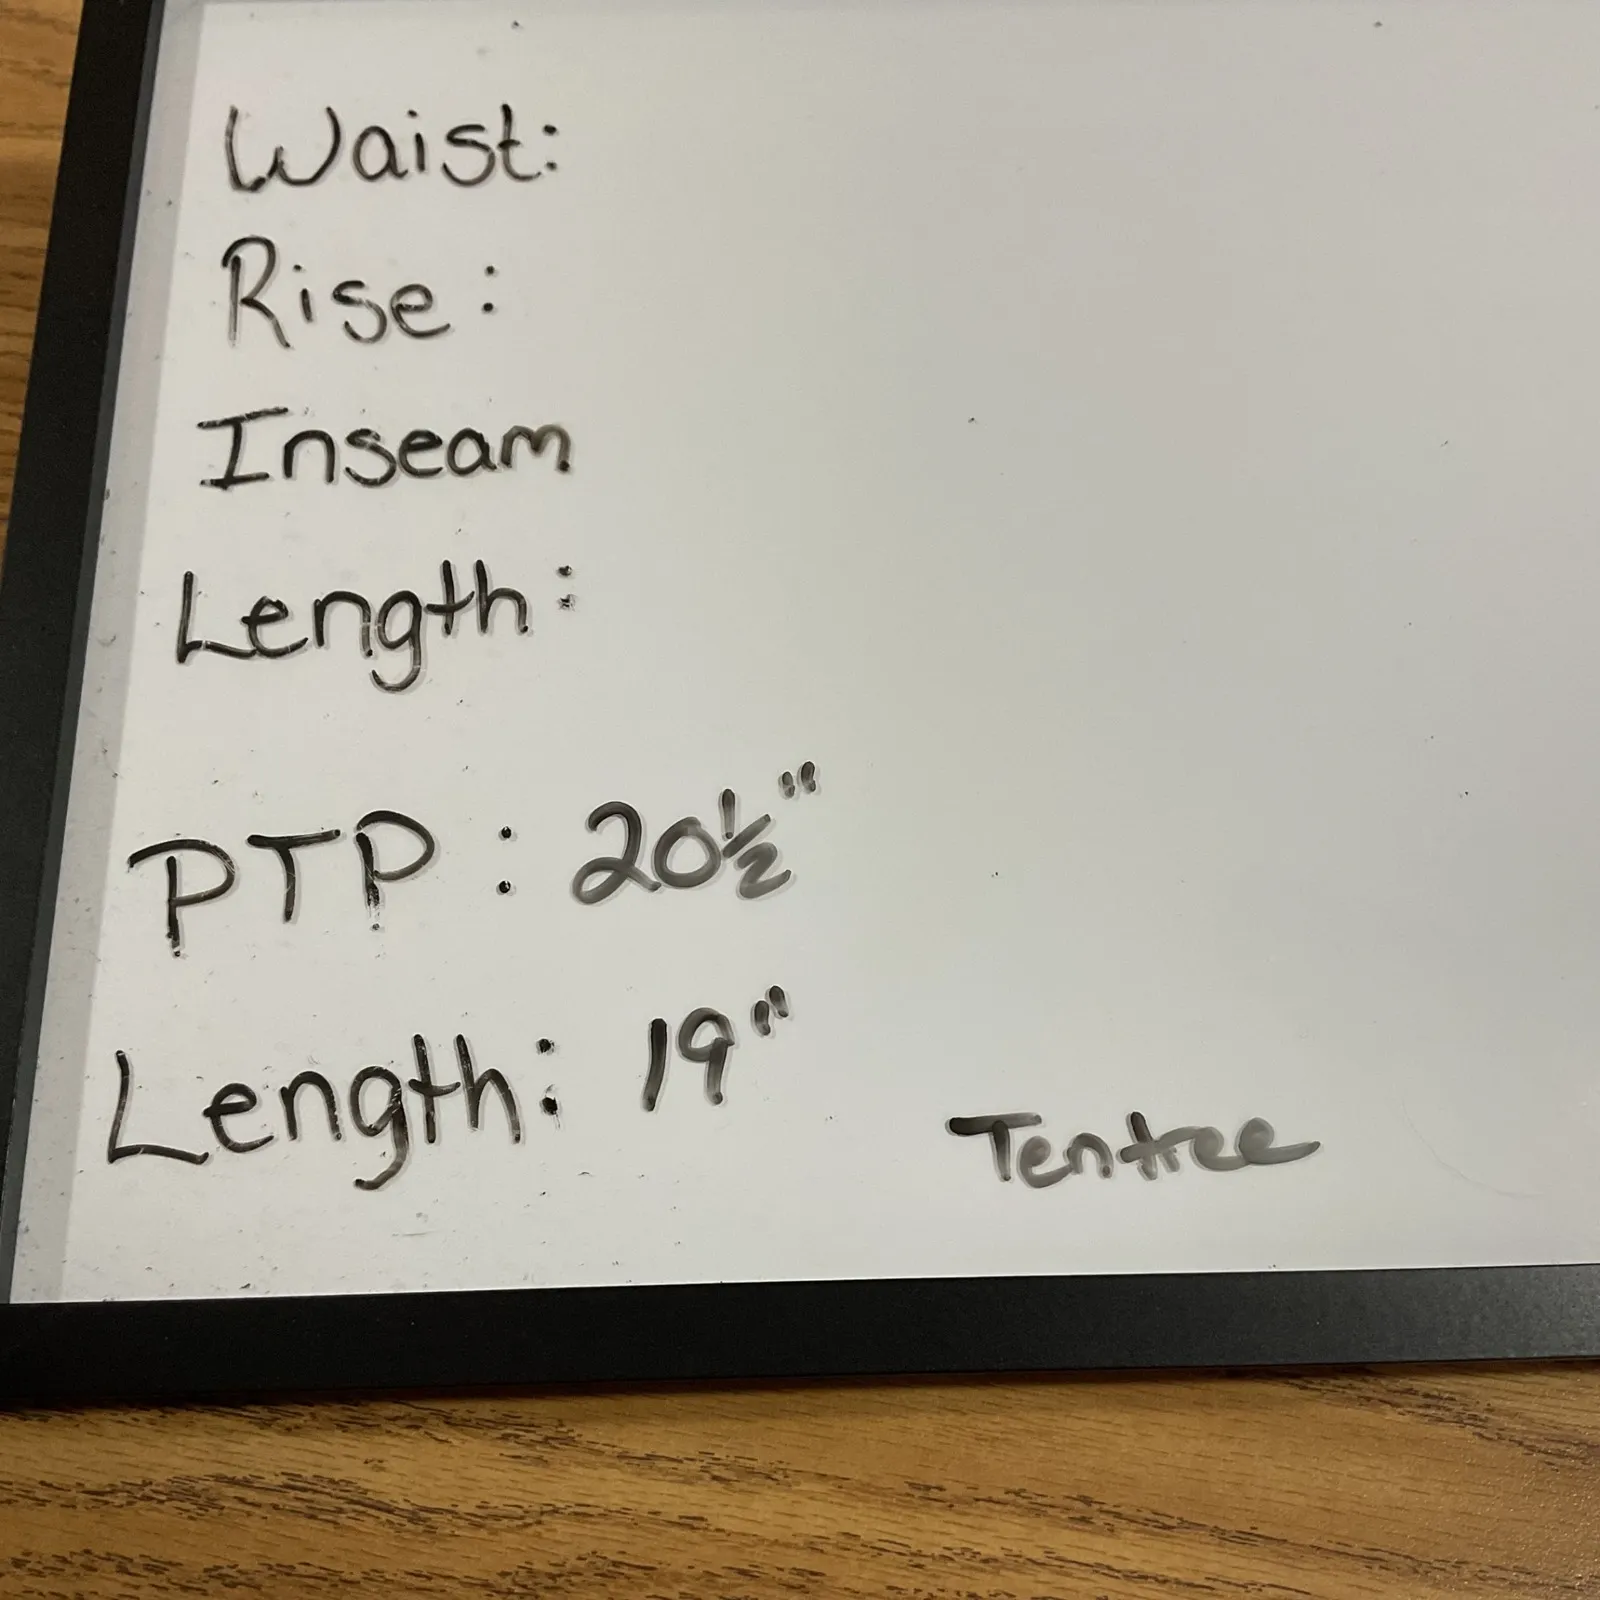 Waist:
Rise:
Inseam
Length:
PTP: 20½"
Length: 19"
Tentree